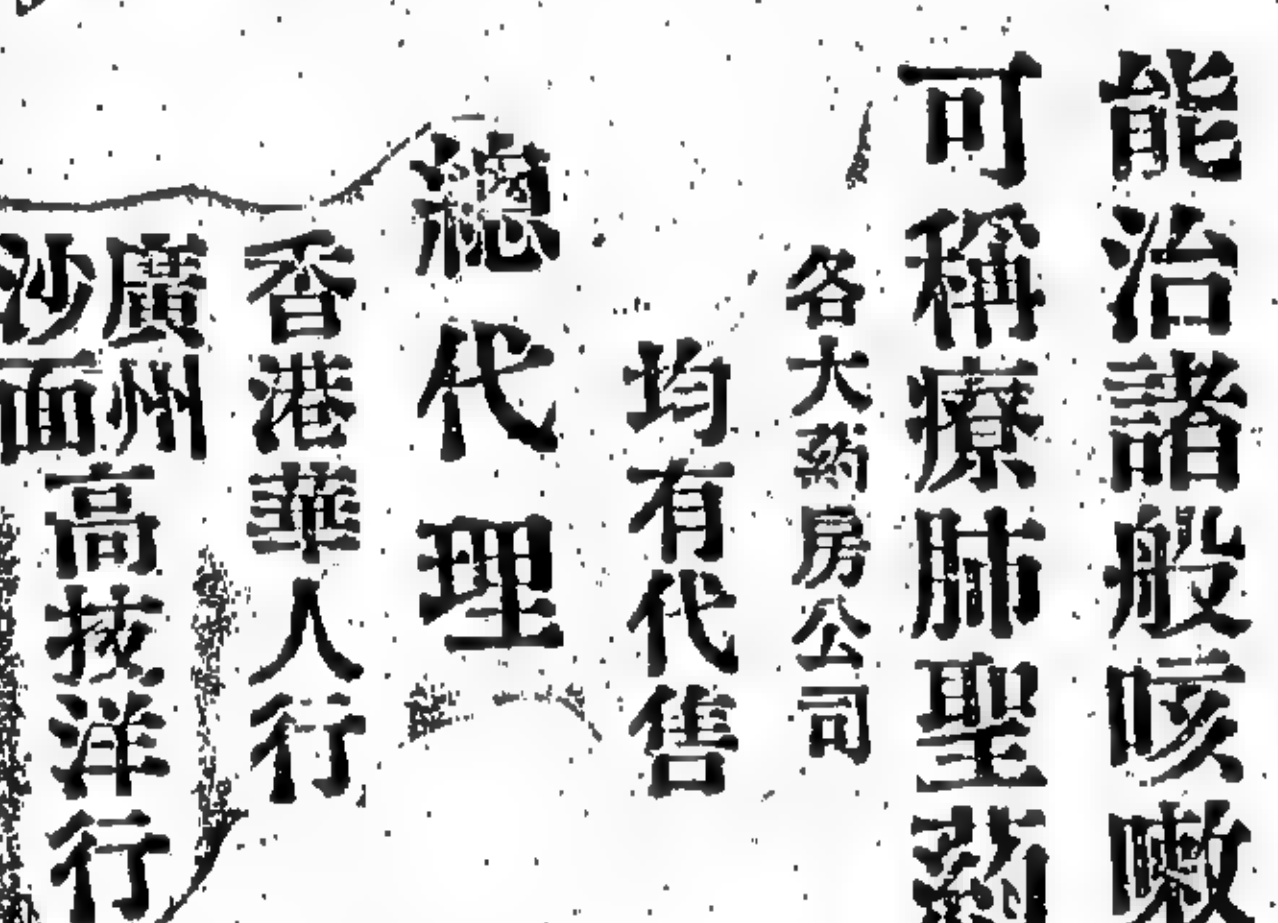 能治諸般咳嗽
可稱療肺聖药
各大药房公司
均有代售
總代理
香港華人行
廣州
沙面
高技洋行